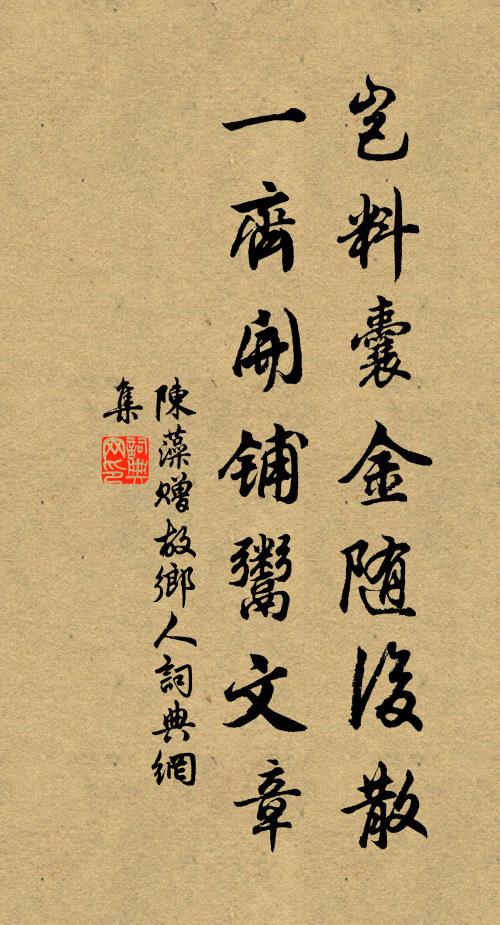 豈料囊金随後散
一齊開鋪鬻文章
陳藻贈故鄉人詞典網
集
詞典网